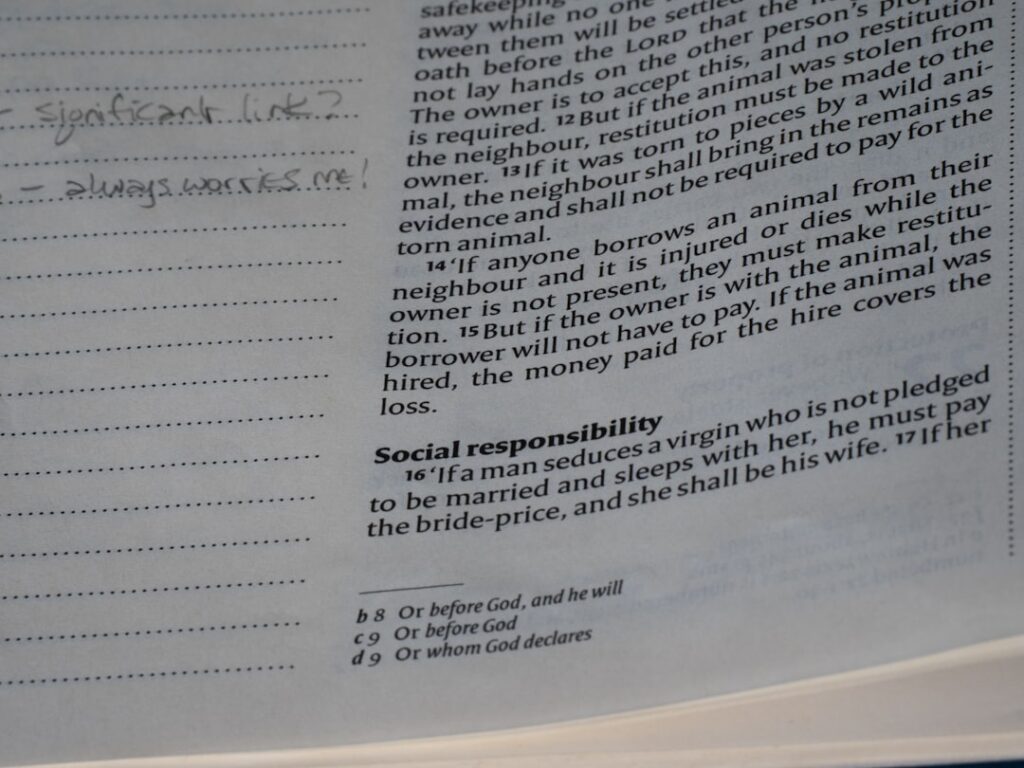 - significant link?
- always worries me!
safekeeping
away while no one
tween them will be settled
oath before the LORD that the
not lay hands on the other person's
The owner is to accept this, and no restitution
is required. 12 But if the animal was stolen from
the neighbour, restitution must be made to the
owner. 13 If it was torn to pieces by a wild ani-
mal, the neighbour shall bring in the remains as
evidence and shall not be required to pay for the
torn animal.
14 ‘If anyone borrows an animal from their
neighbour and it is injured or dies while the
owner is not present, they must make restitu-
tion. 15 But if the owner is with the animal, the
borrower will not have to pay. If the animal was
hired, the money paid for the hire covers the
loss.
Social responsibility
16 ‘If a man seduces a virgin who is not pledged
to be married and sleeps with her, he must pay
the bride-price, and she shall be his wife. 17 If her
b 8 Or before God, and he will
c 9 Or before God
d 9 Or whom God declares